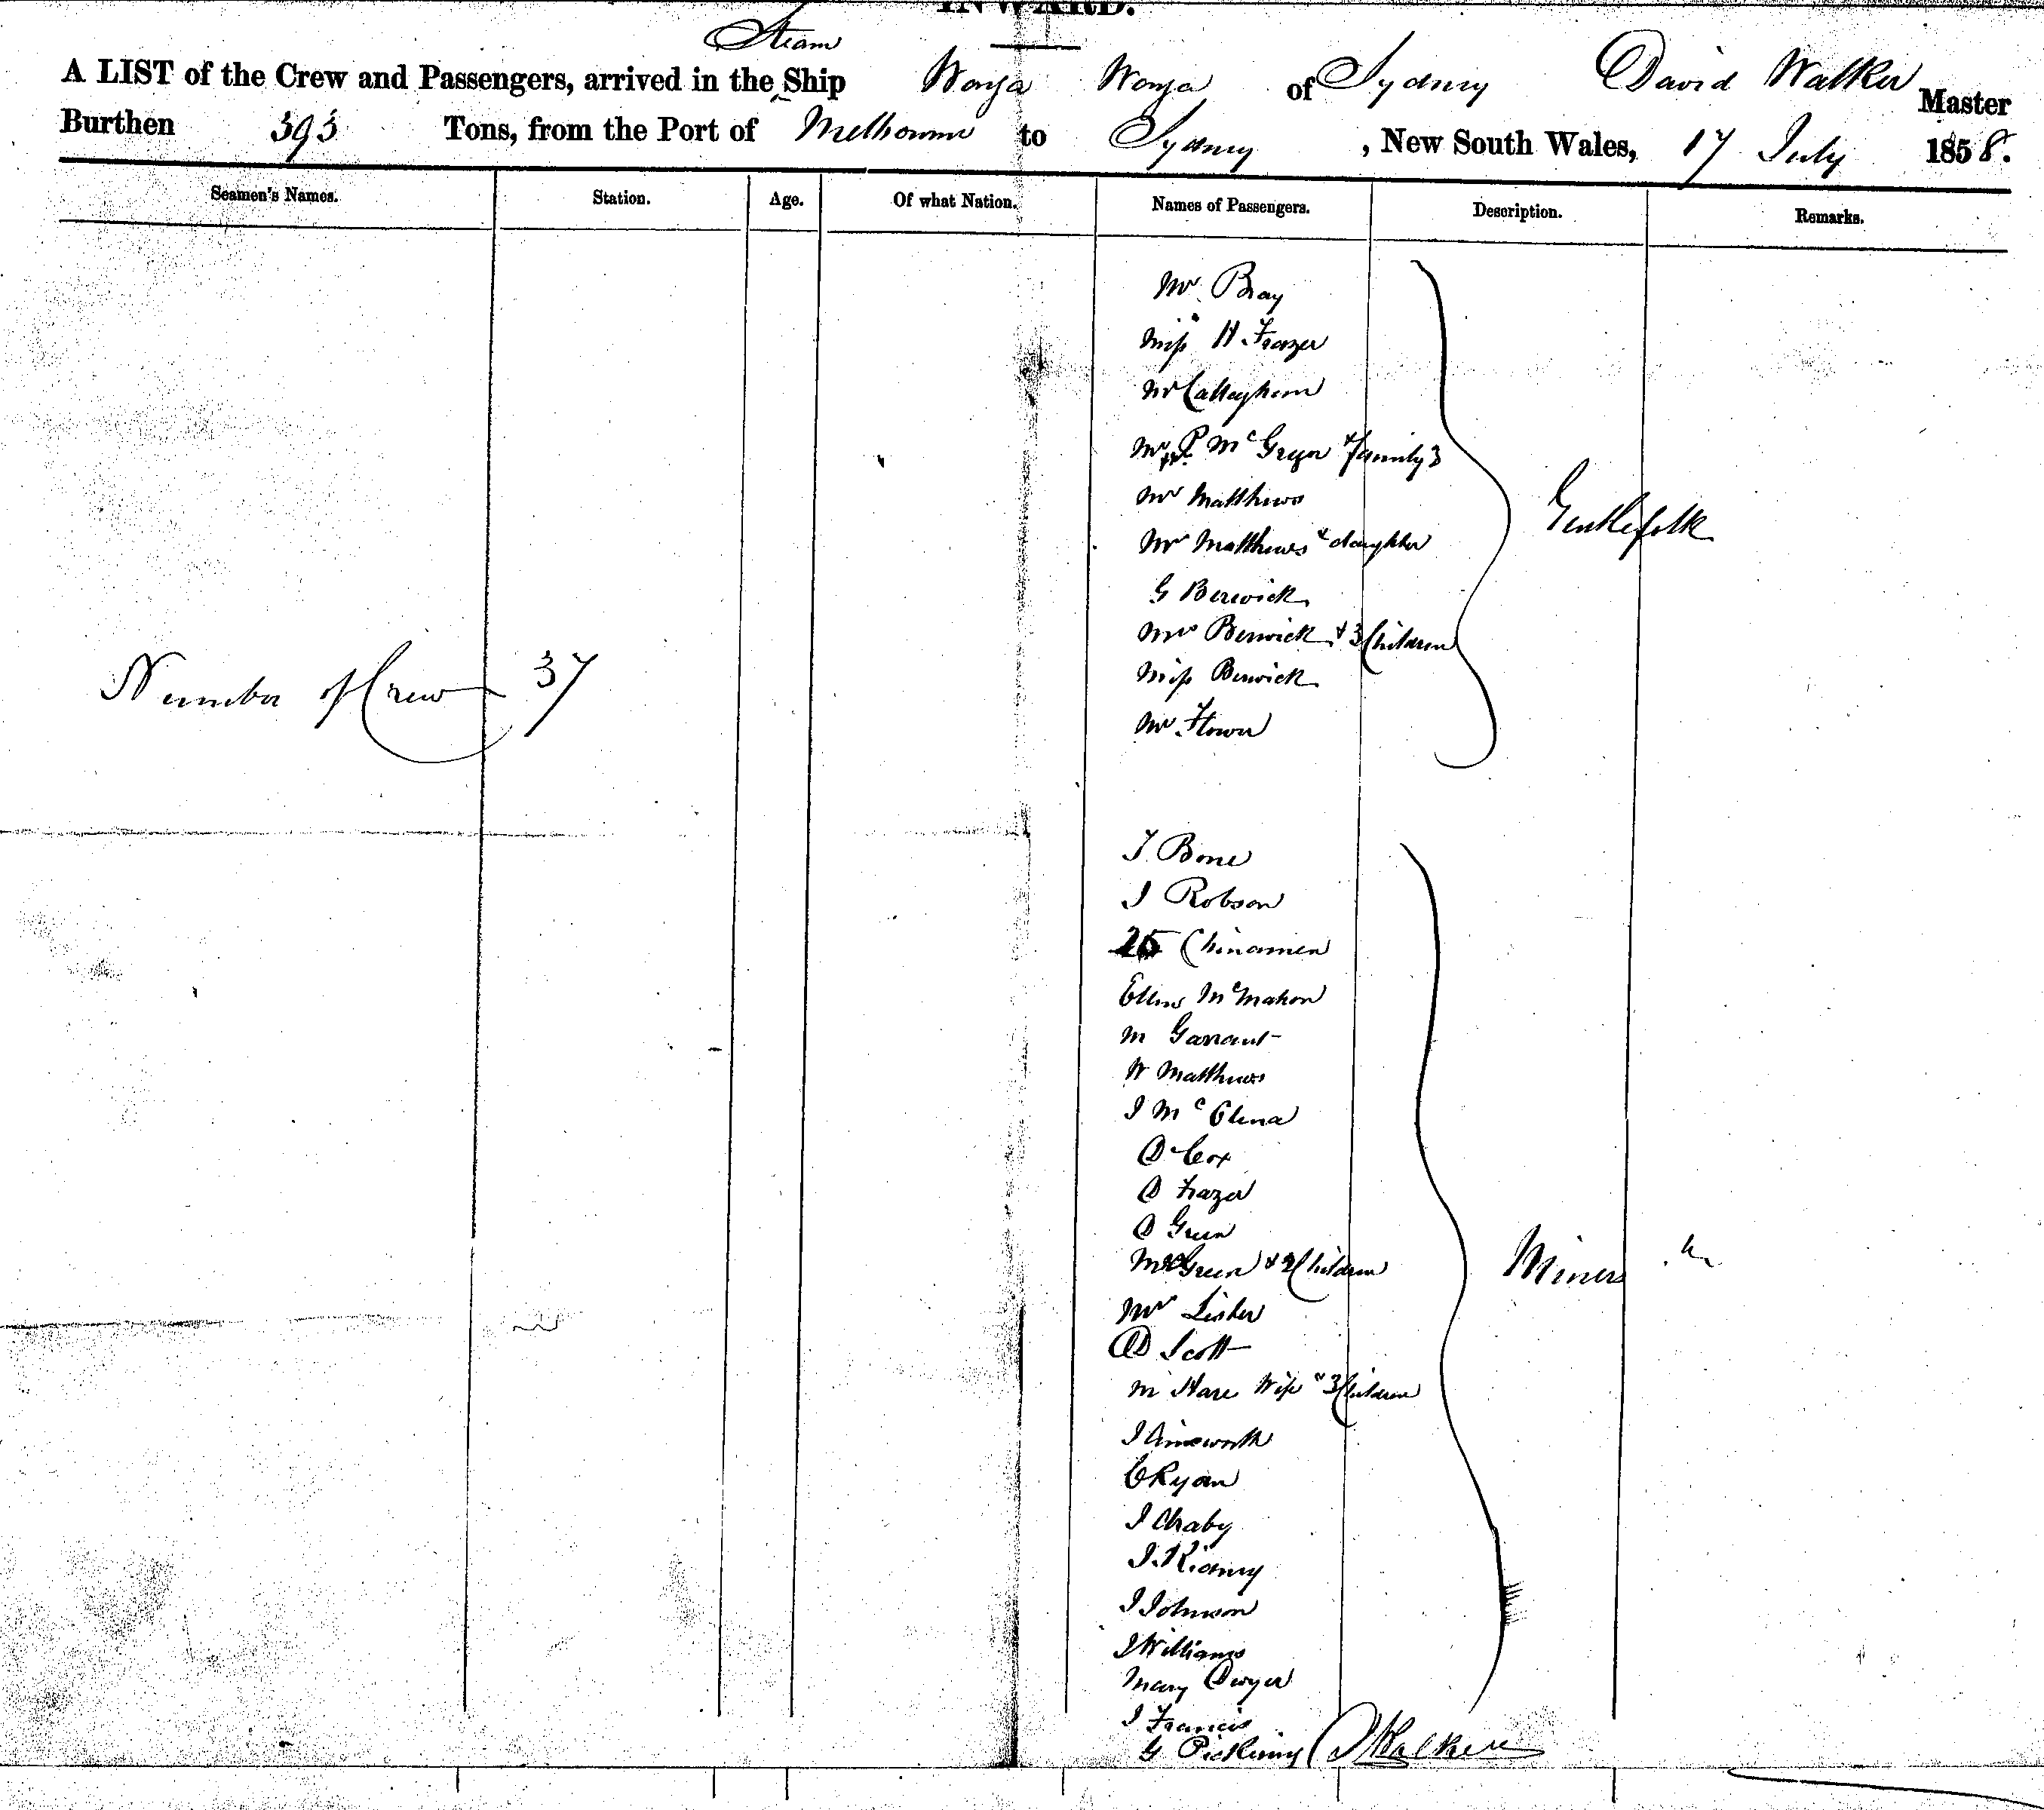 INWARD.
Steam
A LIST of the Crew and Passengers, arrived in the Ship Wonga Wonga of Sydney David Walker Master
Burthen 393 Tons, from the Port of Melbourne to Sydney, New South Wales, 17 July 1858.
Seamen's Names. Station. Age. Of what Nation. Names of Passengers. Description. Remarks.
Mr. Bray
Miss H. Frazer
Mr Callaghan
Mr P. McGregor & family 3
Mr Matthews
Mrs Matthews & daughter
Gentlefolk
G Berwick
Mrs Berwick & 3 Children
Miss Berwick
Number of Crew 37
Mr. Flower
T. Bone
J Robson
25 Chinamen
Ellen McMahon
M Garraut
W Matthews
J McClena
D Cox
D Frazer
D Green
Mrs Green & 2 Children
Miners
Mr Lister
D Scott
M Hare Wife & 3 Children
J Ainsworth
C Ryan
J Chaby
J. Kidney
J Johnson
J Williams
Mary Dwyer
J Francis
G Pickering D Walker